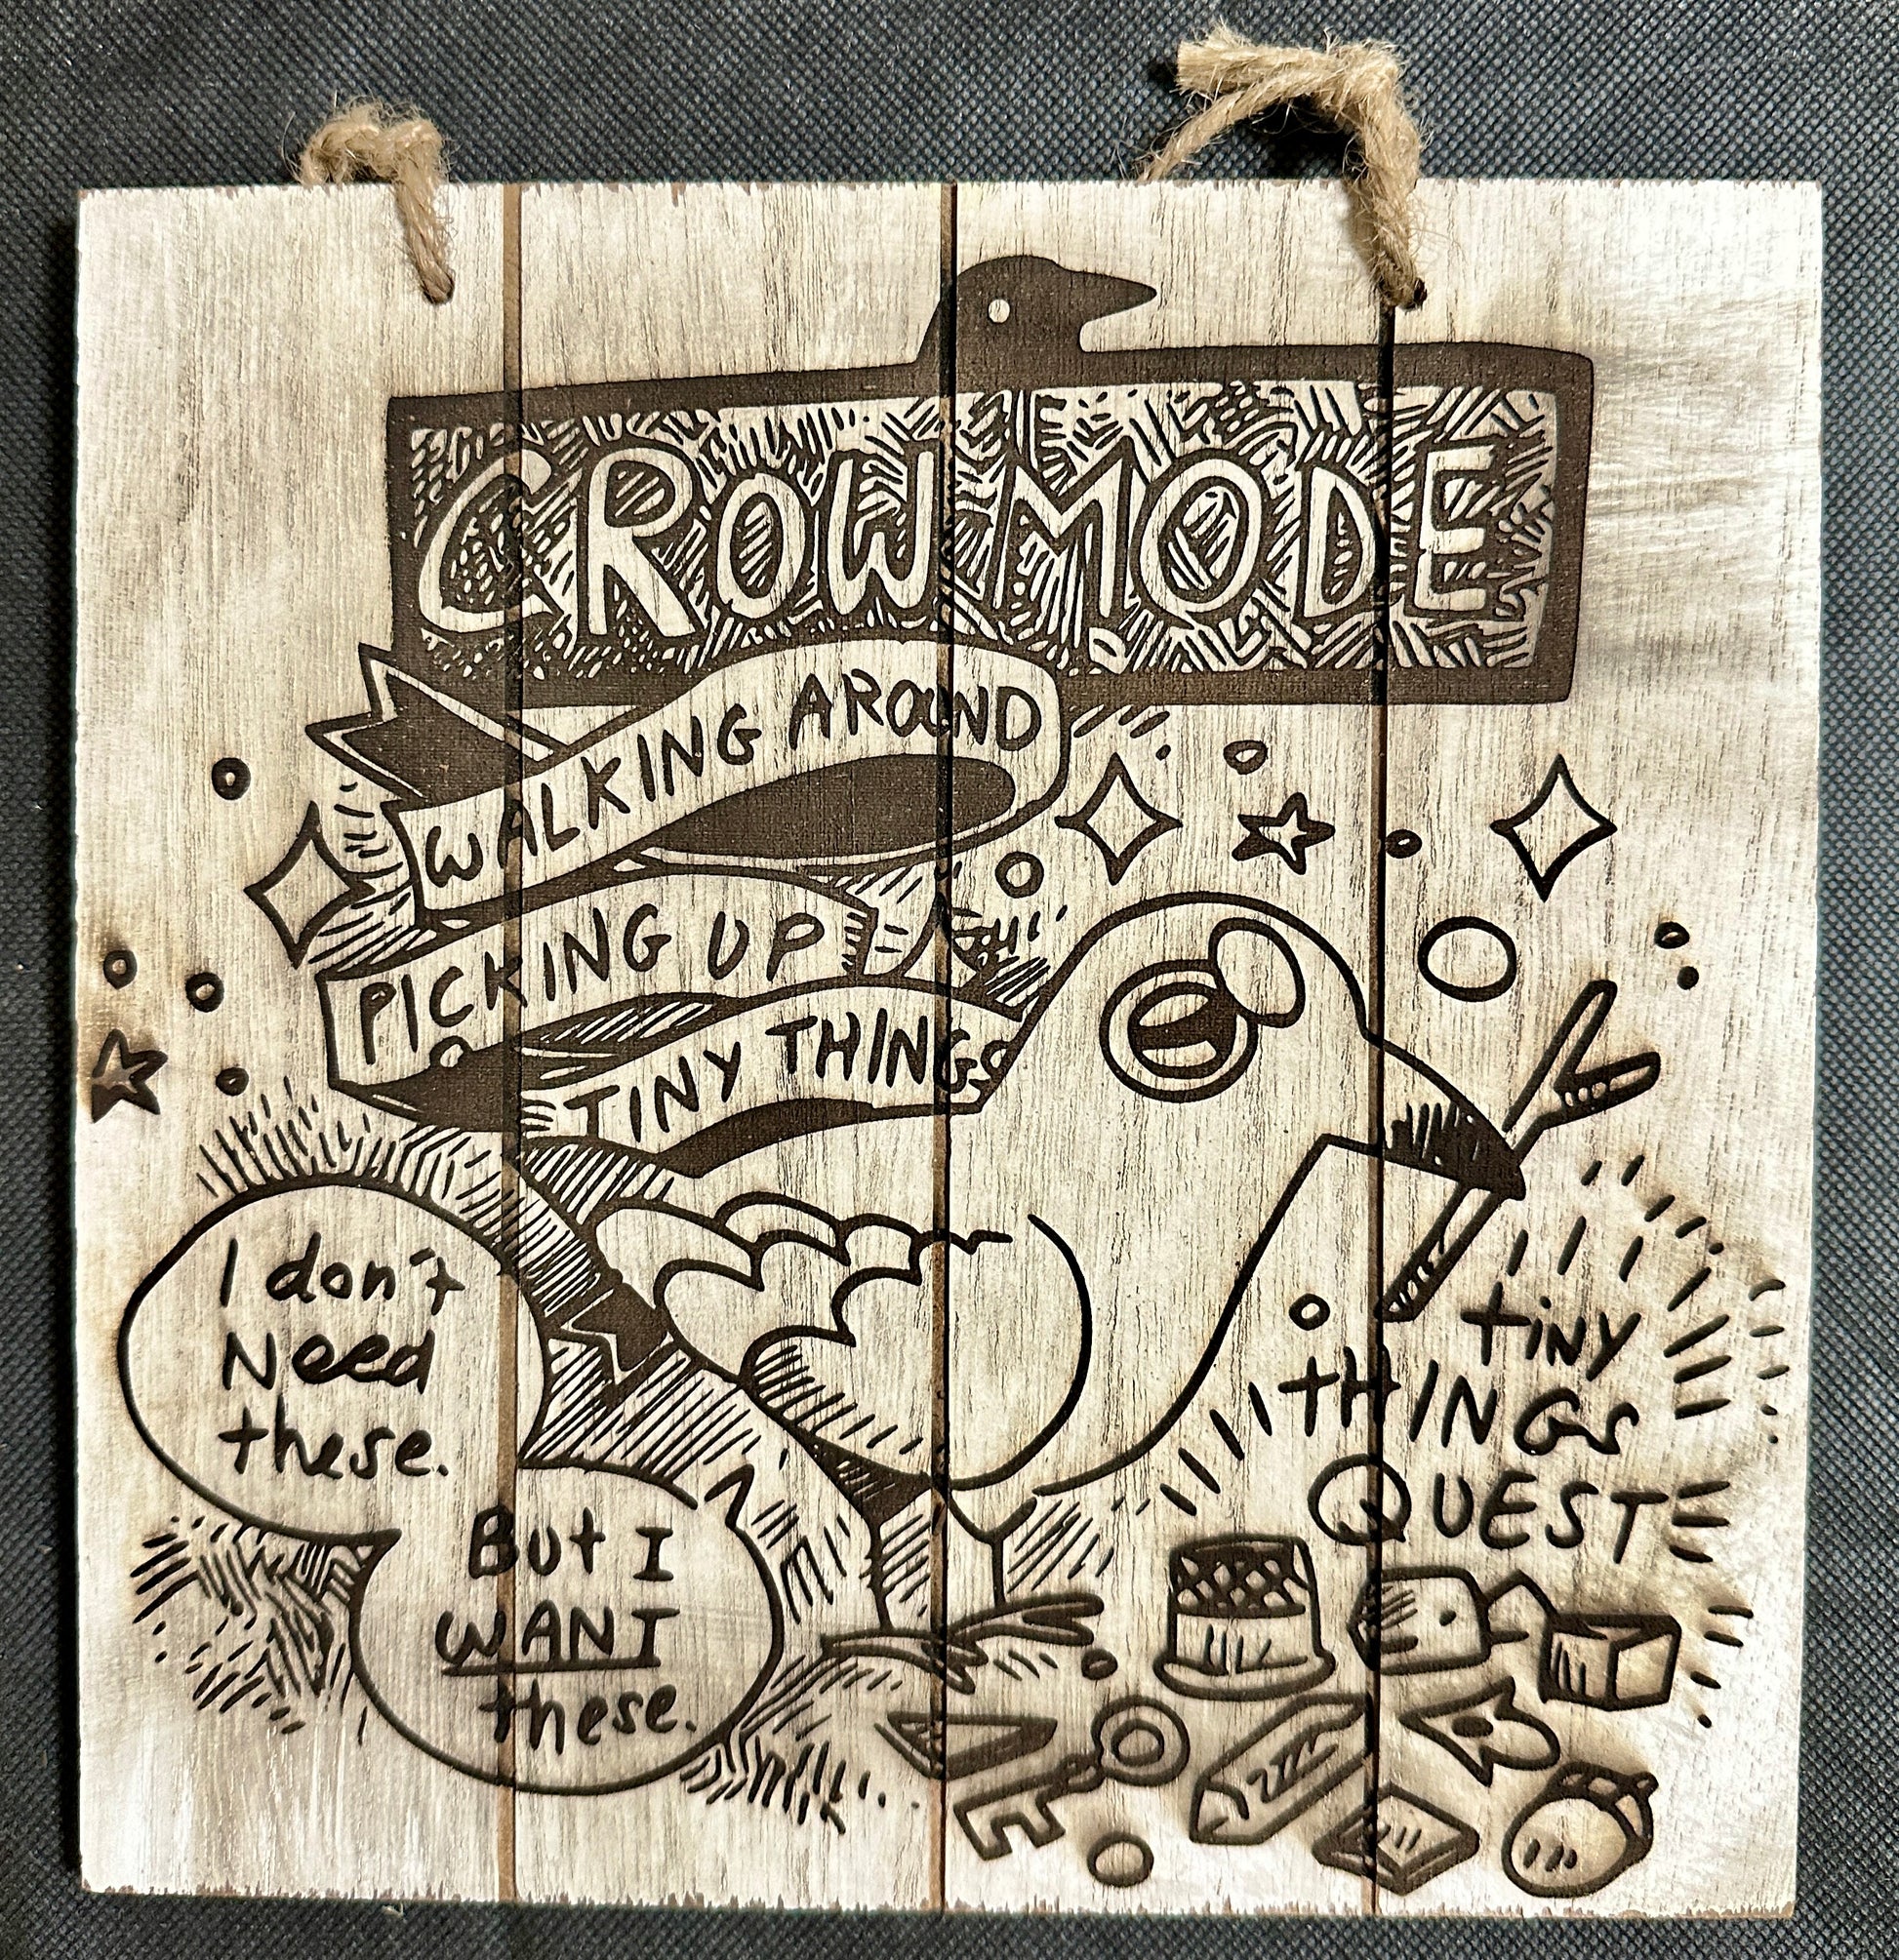 CROW MODE
WALKING AROUND
PICKING UP
TINY THINGS
I don't
Need
these.
But I
WANT
these.
tiNY
tHINGS
QUEST